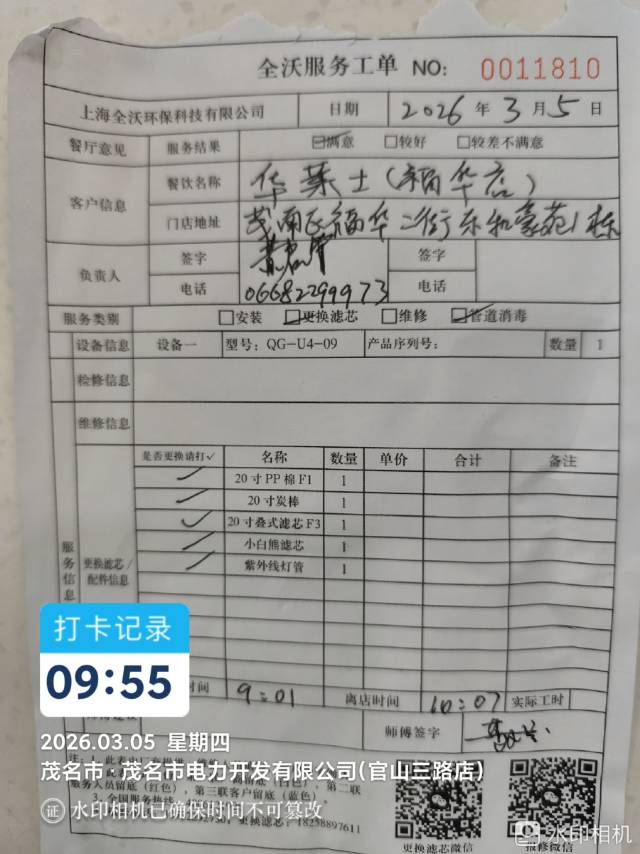 全沃服务工单 NO: 0011810
上海全沃环保科技有限公司 日期 2026 年 3 月 5 日
餐厅意见 服务结果 ☑满意 □较好 □较差不满意
客户信息 餐饮名称 华莱士(福华店)
门店地址 茂南区福华二街东和豪苑1栋
负责人 签字 签字
电话 06682299973 电话
服务类别 □安装 ☑更换滤芯 □维修 ☑管道消毒
设备信息 设备一 型号: QG-U4-09 产品序列号: 数量 1
检修信息
维修信息
服务信息
更换滤芯/配件信息
是否更换请打✓ 名称 数量 单价 合计 备注
✓ 20寸PP棉F1 1
✓ 20寸炭棒 1
✓ 20寸叠式滤芯F3 1
✓ 小白熊滤芯 1
✓ 紫外线灯管 1
打卡记录
09:55
时间 9:01 离店时间 10:07 实际工时
师傅签字
2026.03.05 星期四
茂名市·茂名市电力开发有限公司(官山三路店)
服务人员留底(红色),第三联客户留底(蓝色)
水印相机已确保时间不可篡改
更换滤芯: 18258897611
更换滤芯微信 报修微信
水印相机